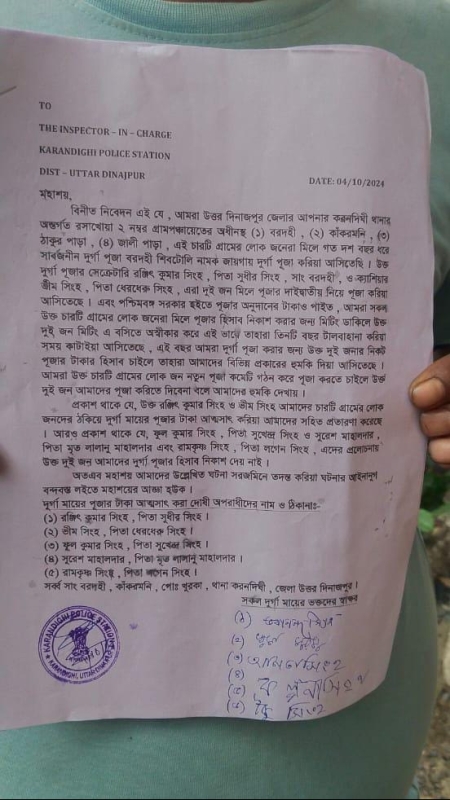 TO
THE INSPECTOR – IN – CHARGE
KARANDIGHI POLICE STATION
DIST – UTTAR DINAJPUR
DATE: 04/10/2024
মহাশয়,
বিনীত নিবেদন এই যে , আমরা উত্তর দিনাজপুর জেলার আপনার করনদিঘী থানার
অন্তর্গত রসাখোয়া ২ নম্বর গ্রামপঞ্চায়েতের অধীনস্থ (১) বরদহী , (২) কাঁকরমনি , (৩)
ঠাকুর পাড়া , (৪) জালী পাড়া , এই চারটি গ্রামের লোক জনেরা মিলে গত দশ বছর ধরে
সার্বজনীন দুর্গা পূজা বরদহী শিবটোলি নামক জায়গায় দুর্গা পূজা করিয়া আসিতেছি । উক্ত
দুর্গা পূজার সেক্রেটারি রঞ্জিৎ কুমার সিংহ , পিতা সুধীর সিংহ , সাং বরদহী , ও ক্যাশিয়ার
ভীম সিংহ , পিতা ধেরধেরু সিংহ , এরা দুই জন মিলে পূজার দাইত্বাতীয় নিয়ে পূজা করিয়া
আসিতেছে । এবং পশ্চিমবঙ্গ সরকার হইতে পূজার অনুদানের টাকাও পাইত , আমরা সকল
উক্ত চারটি গ্রামের লোক জনেরা মিলে পূজার হিসাব নিকাশ করার জন্য মিটিং ডাকিলে উক্ত
দুই জন মিটিং এ বসিতে অস্বীকার করে এই ভাবে তাহারা তিনটি বছর টালবাহানা করিয়া
সময় কাটাইয়া আসিতেছে , এই বছর আমরা দুর্গা পূজা করার জন্য উক্ত দুই জনার নিকট
পূজার টাকার হিসাব চাইলে তাহারা আমাদের বিভিন্ন প্রকারের হুমকি দিয়া আসিতেছে ।
আমরা উক্ত চারটি গ্রামের লোক জন নতুন পূজা কমেটি গঠন করে পূজা করতে চাইলে উক্ত
দুই জন আমাদের পূজা করিতে দিবেনা বলে আমাদের হুমকি দেখায় ।
প্রকাশ থাকে যে, উক্ত রঞ্জিৎ কুমার সিংহ ও ভীম সিংহ আমাদের চারটি গ্রামের লোক
জনদের ঠকিয়ে দুর্গা মায়ের পূজার টাকা আত্মসাৎ করিয়া আমাদের সহিত প্রতারণা করেছে
। আরও প্রকাশ থাকে যে, ফুল কুমার সিংহ , পিতা সুখেন্দ্র সিংহ ও সুরেশ মাহালদার ,
পিতা মৃত লালানু মাহালদার এবং রামকৃষ্ণ সিংহ , পিতা লগেন সিংহ , এদের প্রলোচনায়
উক্ত দুই জন আমাদের দুর্গা পূজার হিসাব নিকাশ দেয় নাই ।
অতএব মহাশয় আমাদের উল্লেখিত ঘটনা সরজমিনে তদন্ত করিয়া ঘটনার আইনানুগ
বন্দবস্ত লইতে মহাশয়ের আজ্ঞা হউক ।
দুর্গা মায়ের পূজার টাকা আত্মসাৎ করা দোষী অপরাধীদের নাম ও ঠিকানাঃ-
(১) রঞ্জিৎ কুমার সিংহ , পিতা সুধীর সিংহ ।
(২) ভীম সিংহ , পিতা ধেরধেরু সিংহ ।
(৩) ফুল কুমার সিংহ , পিতা সুখেন্দ্র সিংহ ।
(৪) সুরেশ মাহালদার , পিতা মৃত লালানু মাহালদার ।
(৫) রামকৃষ্ণ সিংহ , পিতা লগেন সিংহ ।
সর্ব্ব সাং বরদহী , কাঁকরমনি , পোঃ খুরকা , থানা করনদিঘী , জেলা উত্তর দিনাজপুর ।
সকল দুর্গা মায়ের ভক্তদের স্বাক্ষর
(১)
(২)
(৩)
(৪)
(৫) কল্পনা সিংহ
(৬) সিংহ
KARANDIGHI POLICE STATION
KARANDIGHI, UTTAR DINAJPUR